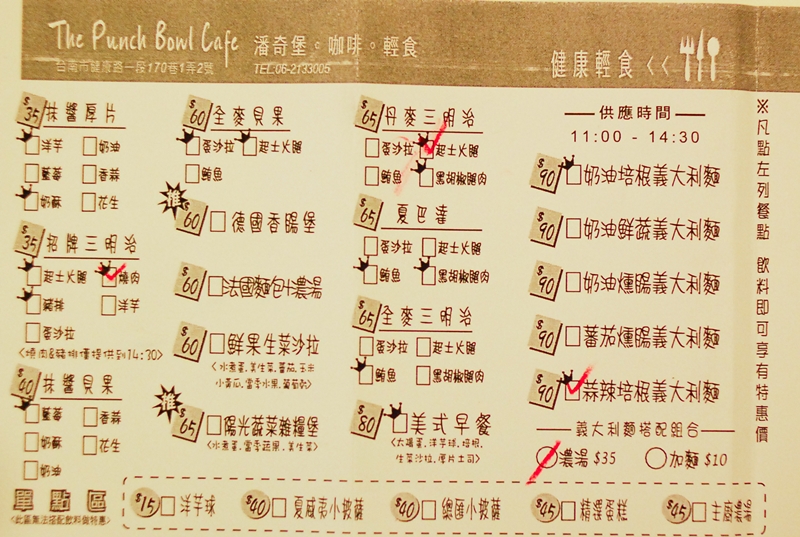 The Punch Bowl Cafe 潘奇堡。咖啡。輕食
台南市健康路一段170巷1弄2號 TEL:06-2133005
健康輕食 <<
$35 抹醬厚片
洋芋 奶油
薯蓉 香蒜
奶酥 花生
$35 招牌三明治
起士火腿 燒肉
豬排 洋芋
蛋沙拉
<燒肉&豬排僅提供到14:30>
$40 抹醬貝果
薯蓉 香蒜
奶酥 花生
奶油
$60 全麥貝果
蛋沙拉 起士火腿
鮪魚
推 $60 德國香腸堡
$60 法國麵包+濃湯
$60 鮮果生菜沙拉
<水煮蛋.美生菜.蕃茄.玉米
小黃瓜.當季水果.葡萄乾>
推 $65 陽光蔬菜雜糧堡
<水煮蛋.當季蔬果.美生菜>
$65 丹麥三明治
蛋沙拉 起士火腿
鮪魚 黑胡椒腿肉
$65 夏巴達
蛋沙拉 起士火腿
鮪魚 黑胡椒腿肉
$65 全麥三明治
蛋沙拉 起士火腿
鮪魚 黑胡椒腿肉
$80 美式早餐
<太陽蛋.洋芋球.培根.
生菜沙拉.厚片土司>
供應時間
11:00 - 14:30
$90 奶油培根義大利麵
$90 奶油鮮蔬義大利麵
$90 奶油燻腸義大利麵
$90 蕃茄燻腸義大利麵
$90 蒜辣培根義大利麵
義大利麵搭配組合
濃湯 $35 加麵 $10
※凡點左列餐點 飲料即可享有特惠價
單點區
<此區無法搭配飲料做特惠>
$15 洋芋球 $40 夏威夷小披薩 $40 總匯小披薩 $45 精選蛋糕 $45 主廚濃湯